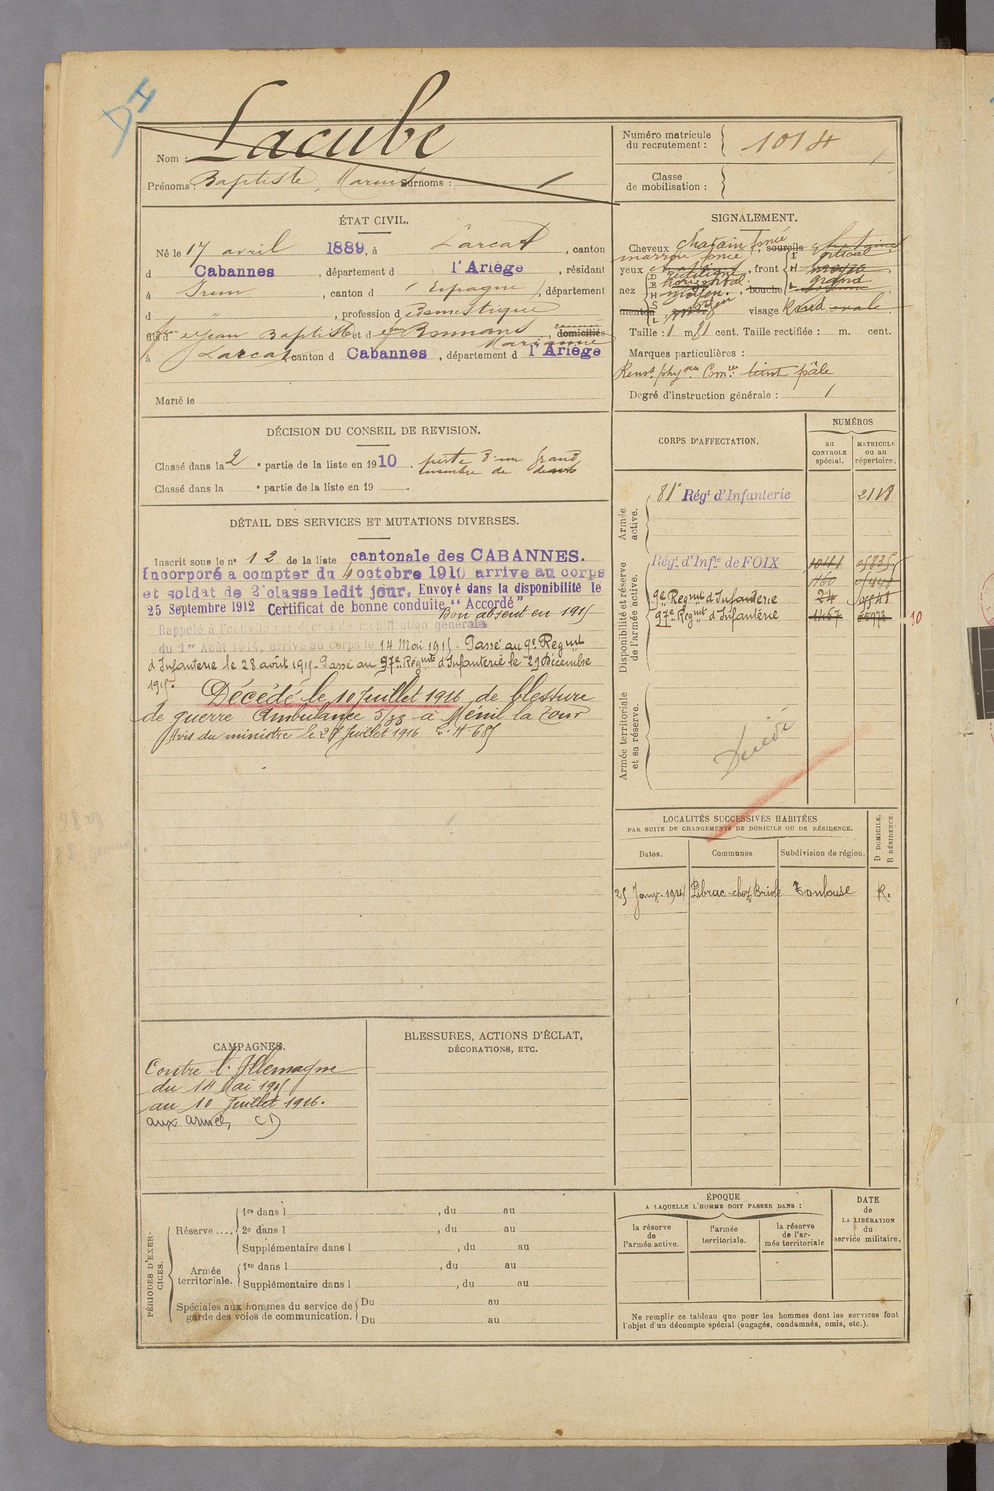 DH
Nom : Lacube
Prénoms : Baptiste, Marius Surnoms :
Numéro matricule du recrutement : 1014
Classe de mobilisation :
ÉTAT CIVIL.
Né le 17 avril 1889, à Larcat, canton
d Cabannes, département d l'Ariège, résidant
à Irun, canton d (Espagne), département
d ", profession d domestique
fils d Jean Baptiste et d Bonnans Marianne domiciliés
à Larcat, canton d Cabannes, département d l'Ariège
Marié le
SIGNALEMENT.
Cheveux chatain foncé, sourcils chatains
marron foncé
yeux, front
nez, bouche
menton visage Rond ovale
Taille : 1 m. cent. Taille rectifiée : m. cent.
Marques particulières :
teint pâle
Degré d'instruction générale :
DÉCISION DU CONSEIL DE REVISION.
Classé dans la 2e partie de la liste en 1910. perte d'un grand
membre de
Classé dans la e partie de la liste en 19
DÉTAIL DES SERVICES ET MUTATIONS DIVERSES.
Inscrit sous le n° 12 de la liste cantonale des CABANNES.
Incorporé a compter du 4 octobre 1910 arrive au corps
et soldat de 2e classe ledit jour. Envoyé dans la disponibilité le
25 Septembre 1912 Certificat de bonne conduite "Accordé"
Bon absent en 1915
Rappelé à l'activité mobilisation générale
du 1er Août 1914, arrivé au corps le 14 Mai 1915. Passé au 9e Regmt
d'Infanterie le 28 août 1915. Passé au 97e Regmt d'Infanterie le 29 Décembre
1915.
Décédé le 10 Juillet 1916 de blessure
de guerre Ambulance 5/33 à Ménil la Tour
Avis du ministre le 27 Juillet 1916
CORPS D'AFFECTATION.
NUMÉROS
au CONTROLE spécial.
MATRICULE ou au répertoire.
Armée active.
81e Régt d'Infanterie 2118
Disponibilité et réserve de l'armée active.
Régt d'Infie de FOIX
9e Regmt d'Infanterie 24
97e Regmt d'Infanterie 1467
Armée territoriale et sa réserve.
LOCALITÉS SUCCESSIVES HABITÉES
PAR SUITE DE CHANGEMENTS DE DOMICILE OU DE RÉSIDENCE.
Dates. Communes Subdivision de région. D DOMICILE, R RÉSIDENCE.
25 Janv. 1914 Pibrac-chez Toulouse R.
CAMPAGNES.
Contre l'Allemagne
du 14 Mai 1915
au 10 Juillet 1916.
aux armées CD
BLESSURES, ACTIONS D'ÉCLAT,
DÉCORATIONS, ETC.
PÉRIODES D'EXERCICES.
Réserve ....
1re dans l , du au
2e dans l , du au
Supplémentaire dans l , du au
Armée territoriale.
1re dans l , du au
Supplémentaire dans l , du au
Spéciales aux hommes du service de garde des voies de communication.
Du au
Du au
ÉPOQUE
A LAQUELLE L'HOMME DOIT PASSER DANS :
la réserve de l'armée active.
l'armée territoriale.
la réserve de l'armée territoriale
DATE de LA LIBÉRATION du service militaire.
Ne remplir ce tableau que pour les hommes dont les services font
l'objet d'un décompte spécial (engagés, condamnés, omis, etc.).